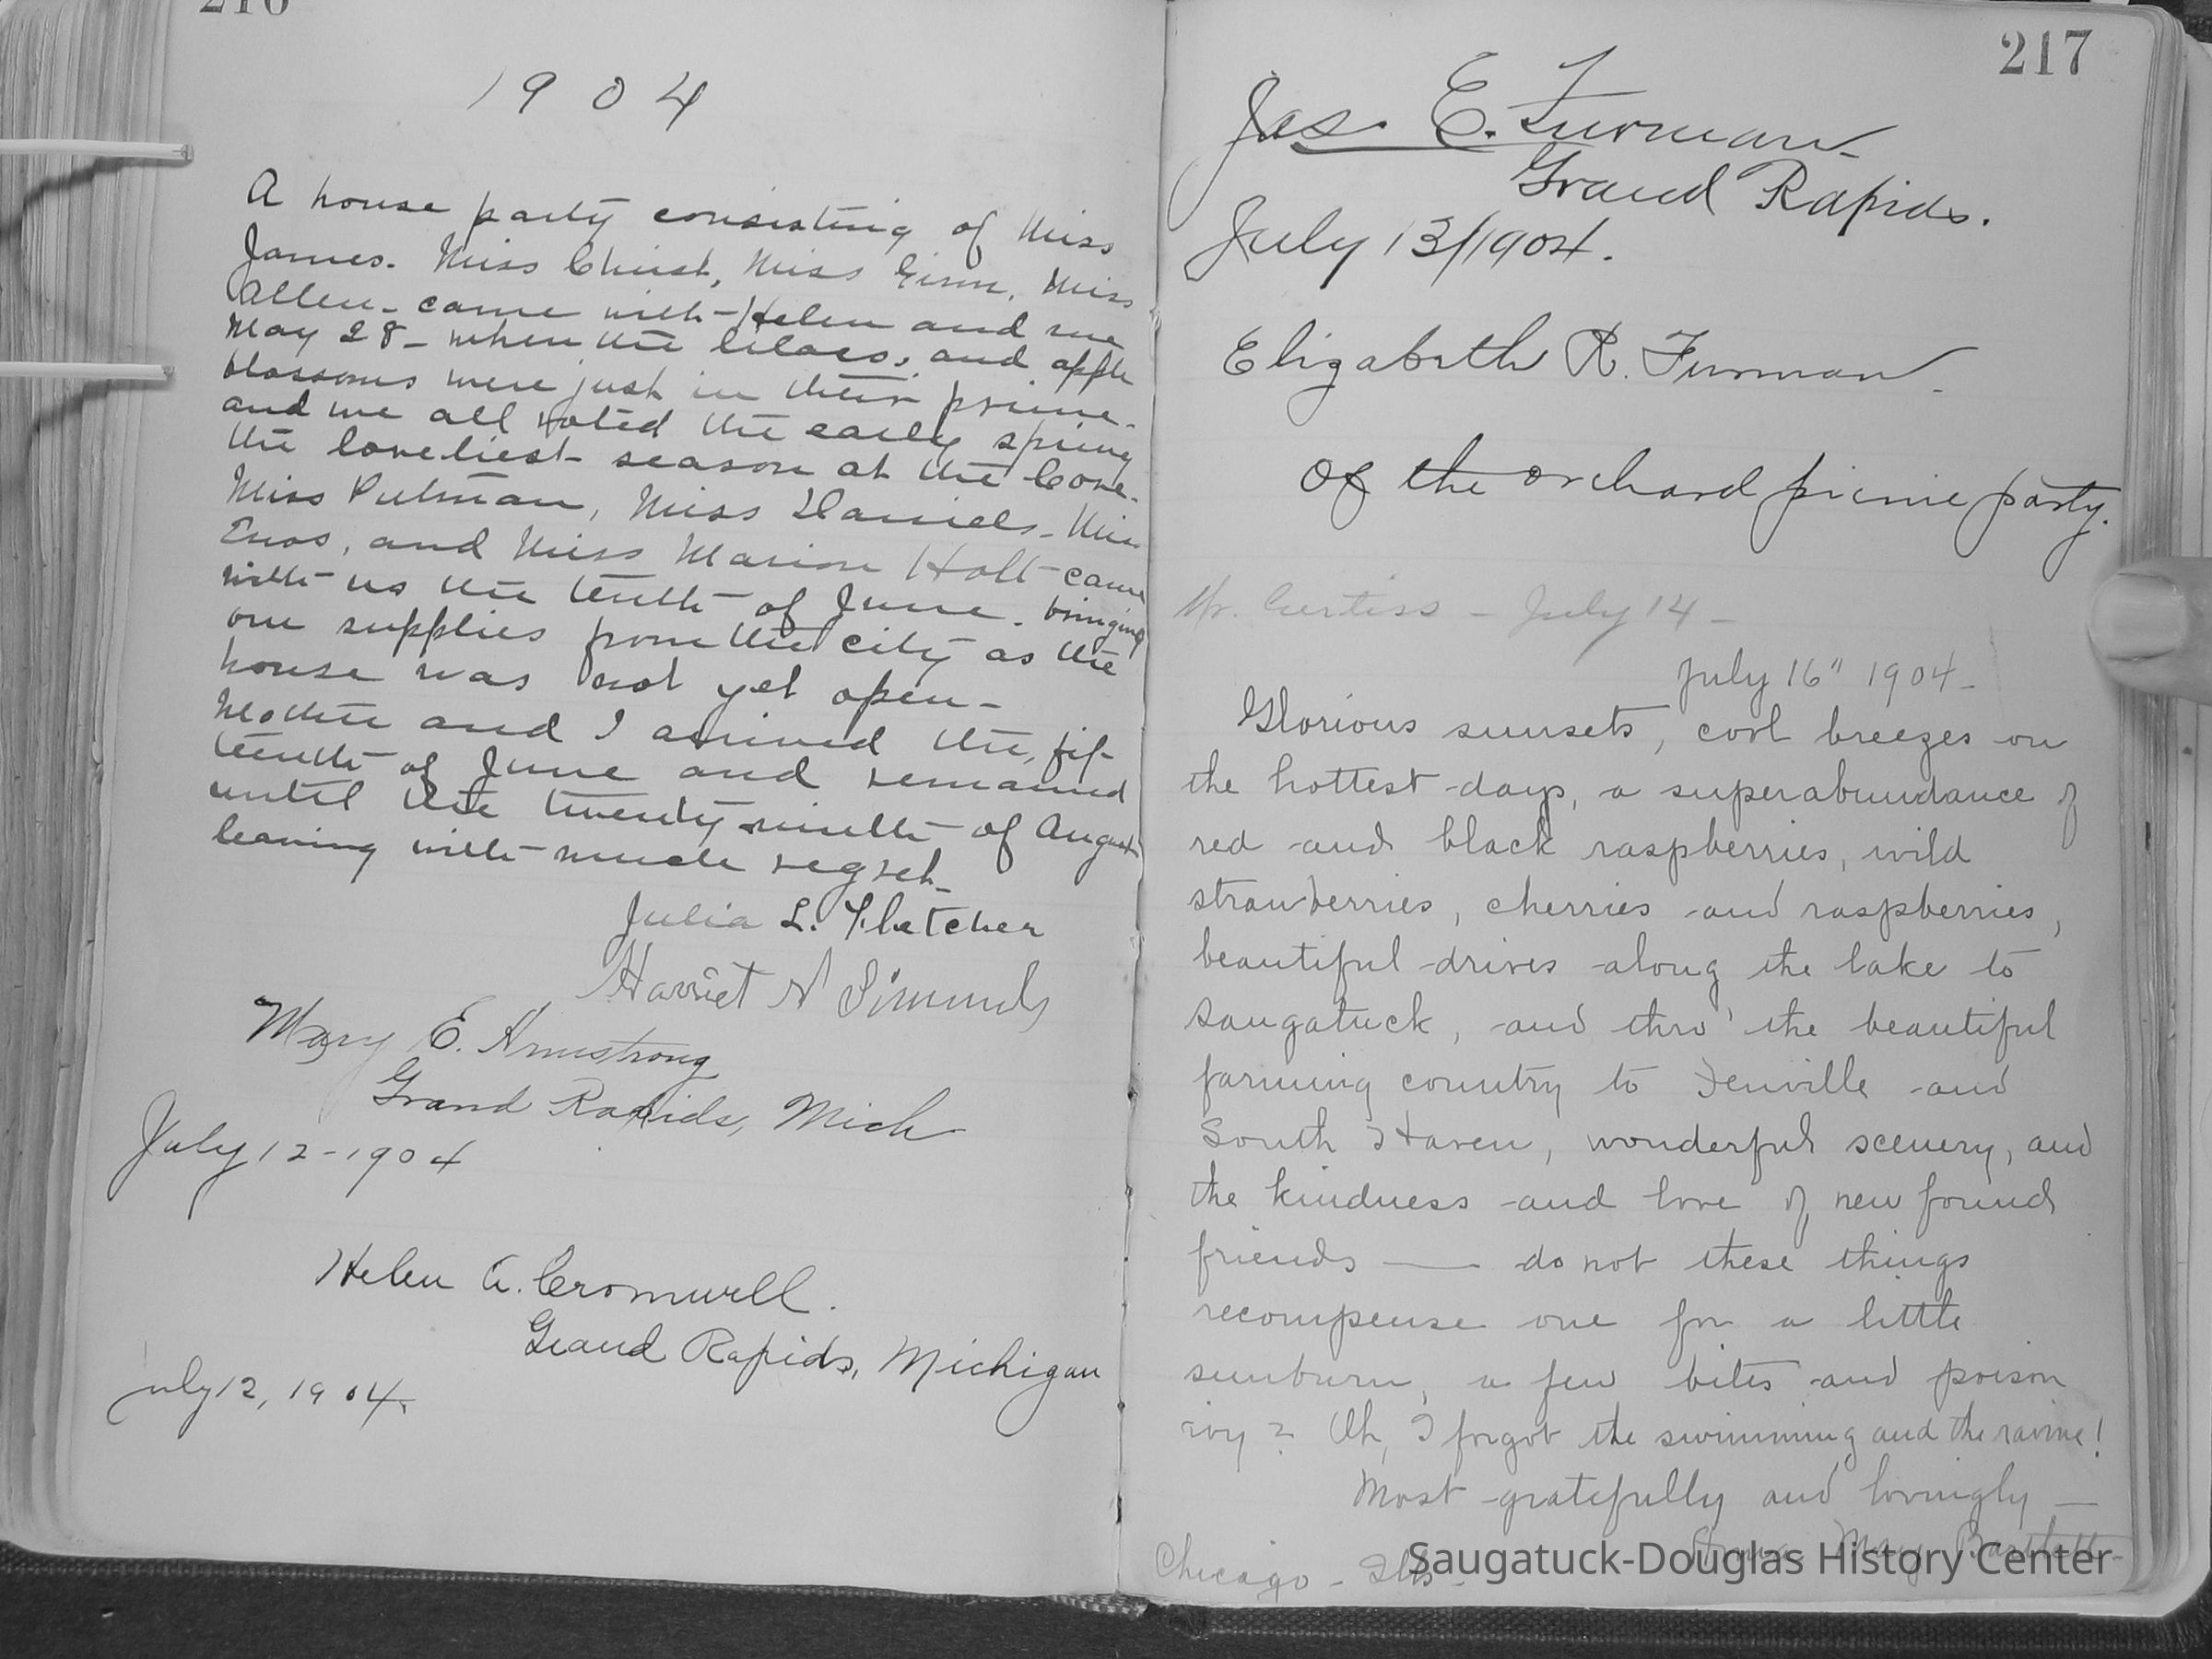 216
1904
A house party consisting of Miss
James. Miss Christ, Miss Ginn, Miss
Allen - came with - Helen and me
May 28 - when the lilacs, and apple
blossoms were just in their prime -
and we all voted the early spring
the loveliest season at the Cove.
Miss Putman, Miss Daniels - Miss
Enos, and Miss Marion Holt came
with us the tenth of June - bringing
our supplies from the city as the
house was not yet open -
Mother and I arrived the fif-
teenth of June and remained
until the twenty-ninth of August
leaving with much regret -
Julia L. Fletcher
Harriet N Simonds
Mary E. Armstrong
Grand Rapids, Mich
July 12 - 1904
Helen A. Cromwell.
Grand Rapids, Michigan
July 12, 1904.
217
Jas. E. Furman -
Grand Rapids.
July 13/1904.
Elizabeth R. Furman -
Of the orchard picnic party.
Mr. Curtiss - July 14 -
July 16" 1904 -
Glorious sunsets, cool breezes on
the hottest days, a superabundance of
red and black raspberries, wild
strawberries, cherries and raspberries,
beautiful drives along the lake to
Saugatuck, and thro' the beautiful
farming country to Fenville and
South Haven, wonderful scenery, and
the kindness and love of new found
friends — do not these things
recompense one for a little
sunburn, a few bites and poison
ivy? Oh, I forgot the swimming and the ravine!
Most gratefully and lovingly —
Mary Bartlett -
Chicago - Ills -
Saugatuck-Douglas History Center